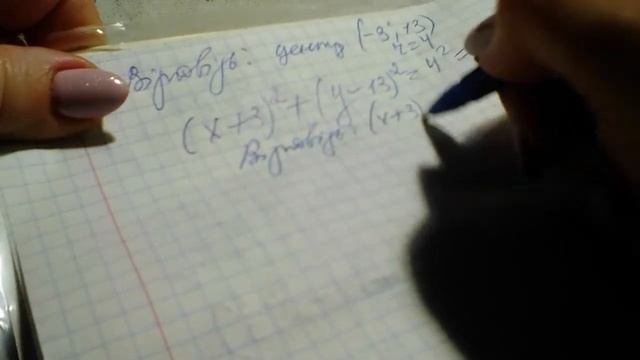 Відповідь: центр (-3; 13)
r=4
(x+3)² + (y-13)² = 4² =
Відповідь: (x+3)